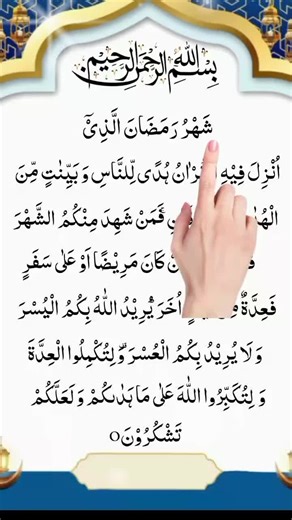 بِسْمِ اللهِ الرَّحْمٰنِ الرَّحِيْمِ
شَهْرُ رَمَضَانَ الَّذِيْٓ
اُنْزِلَ فِيْهِ الْقُرْاٰنُ هُدًى لِّلنَّاسِ وَ بَيِّنٰتٍ مِّنَ
فَمَنْ شَهِدَ مِنْكُمُ الشَّهْرَ
كَانَ مَرِيْضًا اَوْ عَلٰى سَفَرٍ
فَعِدَّةٌ اُخَرَ ؕ يُرِيْدُ اللّٰهُ بِكُمُ الْيُسْرَ
وَلَا يُرِيْدُ بِكُمُ الْعُسْرَ ؗ وَ لِتُكْمِلُوا الْعِدَّةَ
وَ لِتُكَبِّرُوا اللّٰهَ عَلٰى مَا هَدٰىكُمْ وَ لَعَلَّكُمْ
تَشْكُرُوْنَ ۝